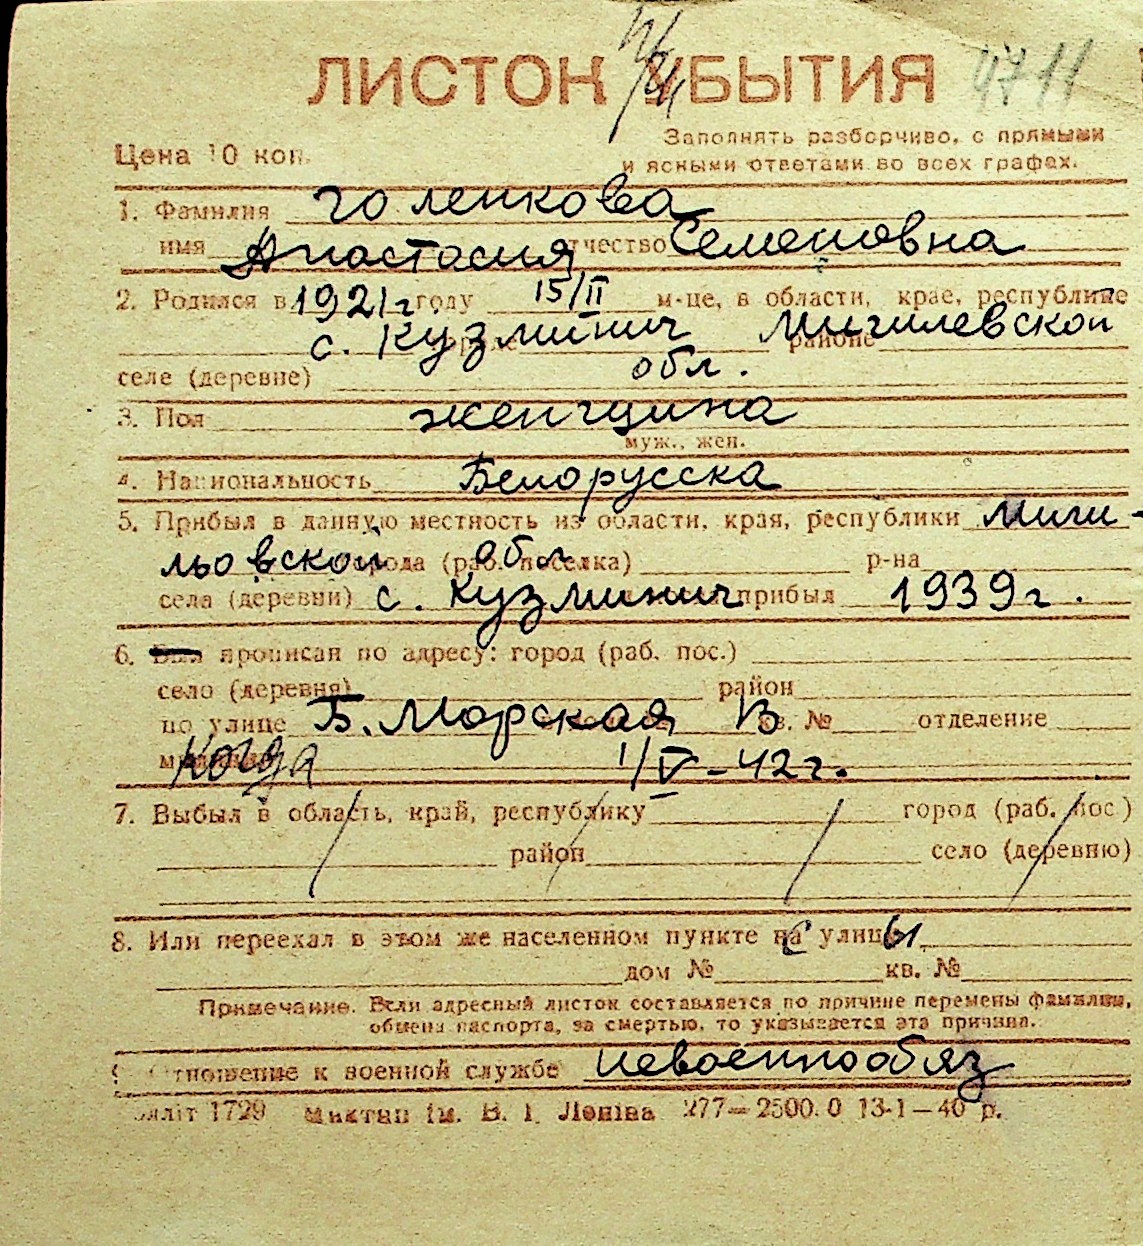 ЛИСТОК УБЫТИЯ 4711
Заполнять разборчиво, с прямыми
Цена 10 коп.
и ясными ответами во всех графах.
1. Фамилия Голенкова
имя Анастасия отчество Семеновна
2. Родился в 1921г году 15/II м-це, в области, крае, республике
с. Кузминич районе Мигилевской
селе (деревне) обл.
3. Пол женщина
муж., жен.
4. Национальность Белорусска
5. Прибыл в данную местность из области, края, республики Миги-
льовской обл города (раб. поселка) р-на
села (деревни) с. Кузминич прибыл 1939г.
6. Был прописан по адресу: город (раб. пос.)
село (деревня) район
по улице Б. Морская 13 кв. № отделение
когда 1/V-42г.
7. Выбыл в область, край, республику город (раб. пос.)
район село (деревню)
8. Или переехал в этом же населенном пункте на улицы
дом № кв. №
Примечание. Если адресный листок составляется по причине перемены фамилии,
обмена паспорта, за смертью, то указывается эта причина.
Отношение к военной службе невоеннообяз
1729 ім. В. І. Леніна 277—2500.0 13-1—40 р.